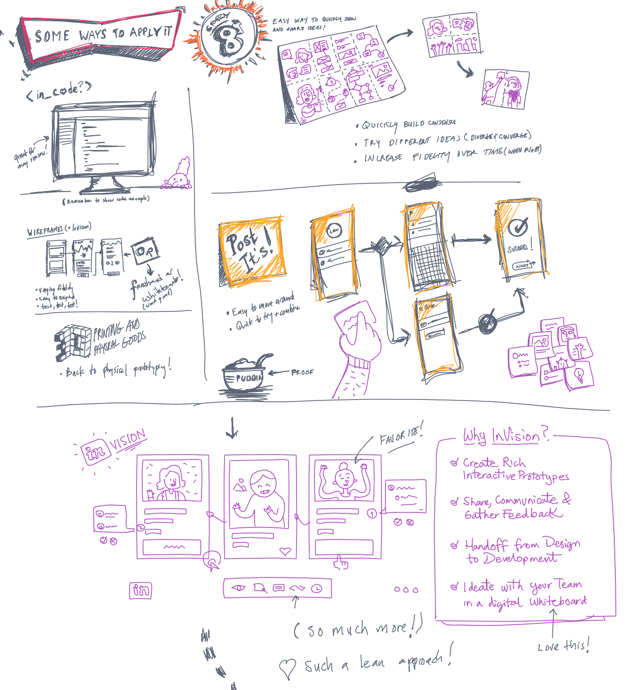 SOME WAYS TO APPLY IT
CRAZY
8
EASY WAY TO QUICKLY SHOW
AND SHARE IDEAS!
• QUICKLY BUILD CONSENSUS
• TRY DIFFERENT IDEAS (DIVERGE/CONVERGE)
• INCREASE FIDELITY OVER TIME (WHEN RIGHT)
<in_code?>
great for
may review!
(Remember to show code examples)
WIREFRAMES (+
• varying fidelity
• easy to expand
• test, test, test!
freehand or
Whiteboard!
3D
PRINTING AND
PHYSICAL GOODS
• Back to physical prototyping!
Post
It's!
• Easy to move around
• Quick to try + combine
SUCCESS!
PUDDIN
PROOF
in VISION
FAVORITE!
in
(so much more!)
♡ Such a lean approach!
Why InVision?
Create Rich
Interactive Prototypes
Share, Communicate &
Gather Feedback
Handoff from Design
to Development
Ideate with your Team
in a digital whiteboard
LOVE this!